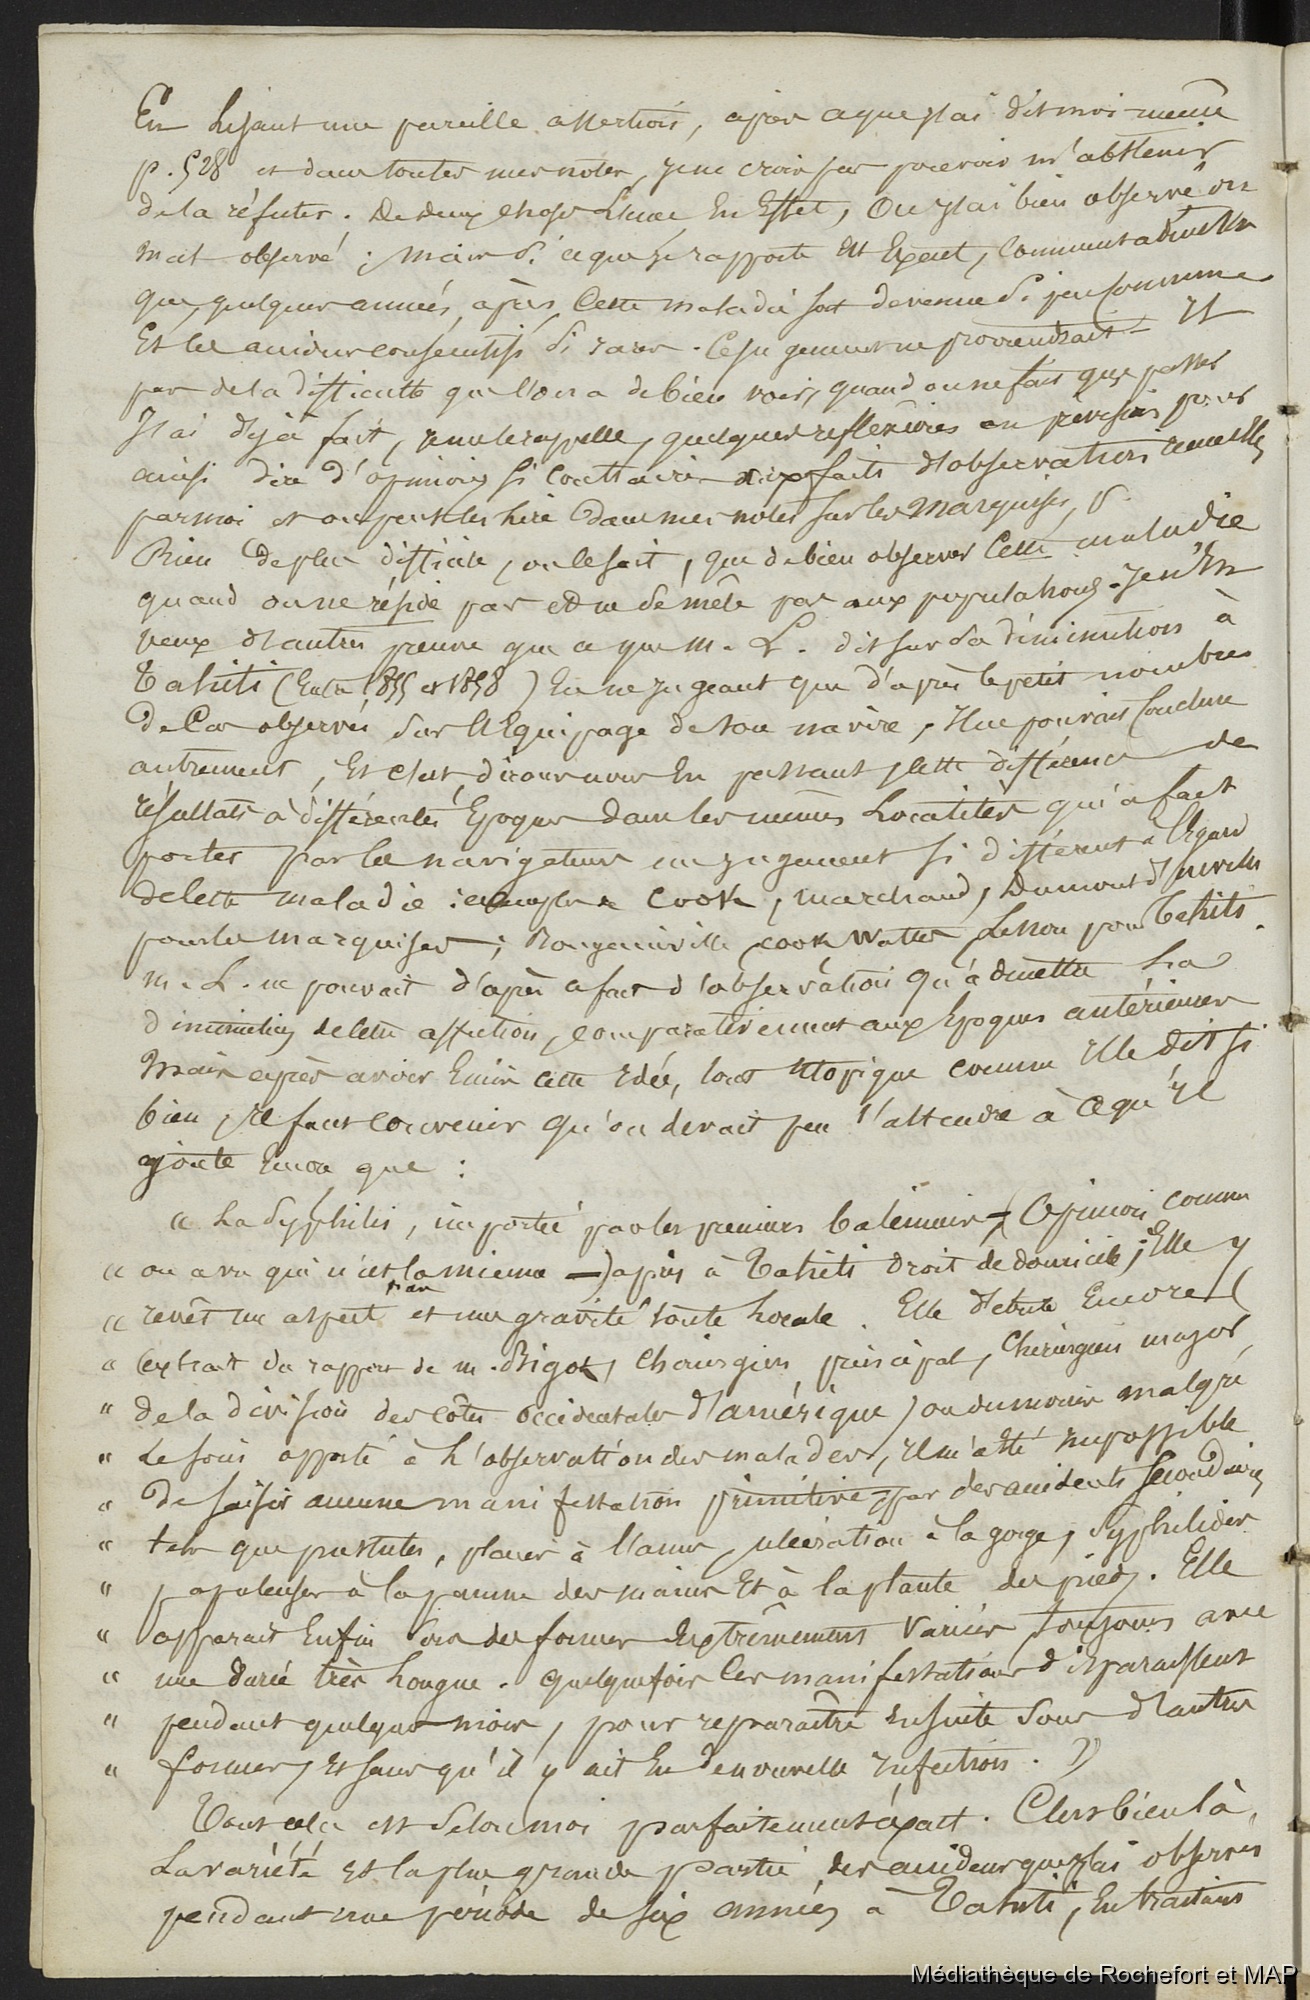 En Lisant une pareille assertion, après ce que j'ai dit moi-même
p. 528 et dans toutes mes notes, je ne crois pas pouvoir m'abstenir
de la réfuter. De deux choses L'une En Effet, Ou j'ai bien observé ou
mal observé ; mais Si ce que je rapporte Est Exact, Comment admettre
que, quelques années après, Cette maladie soit devenue Si peu Commune
Et les accidens consécutifs Si rares. Ce jugement ne proviendrait-Il
pas de la difficulté que l'on a de bien voir, quand on ne fait que passer
J'ai déjà fait, je me le rappelle, quelques reflexions au sujet pour
ainsi dire d'opinions Si Contraires aux faits d'observations recueillis
par moi et on peut les lire Dans mes notes sur les Marquises, p.
Rien de plus difficile, on le sait, que de bien observer Cette maladie
quand on ne réside pas et ne se mêle pas aux populations. Je n'En
veux d'autres preuve que ce que M. L. dit sur Sa diminution à
Tahiti (Entre 1855 et 1858) En ne jugeant que d'après le petit nombre
de Cas observés Sur l'Equipage de son navire, Il ne pouvait Conclure
autrement, Et c'est, disons-nous En passant, Cette différence de
résultats à différentes Epoques dans les mêmes Localités qui a fait
porter par les navigateurs un jugement si différent à l'Egard
de Cette maladie : exemples Cook, Marchand, Dumont d'Urville
pour les marquises ; Bougainville, Cook, Wallis, Lesson pour Tahiti.
M. L. ne pouvait d'après ce fait d'observation qu'admettre La
diminution de Cette affection, comparativement aux Epoques antérieures
Mais après avoir Emis cette Idée, tout Utopique comme Elle dit si
bien, Il faut convenir qu'on devait peu s'attendre à ce qu'Il
ajoute Encore que :
« La Syphilis, importée par les premiers baleiniers — (Opinion, comme
« on a vu qui n'est pas la mienne —) a pris à Tahiti droit de domicile ; Elle y
« revêt un aspect et une gravité toute Locale. Elle débute Encore (
« (extrait du rapport de M. Bigot, Chirurgien principal, Chirurgien major
« de la division des côtes occidentales d'amérique) ou du moins malgré
« Le soin apporté à L'observation des malades, Il m'a été Impossible
« De saisir aucune manifestation primitive, par des accidents Secondaires
« tels que pustules, plaies à l'anus, ulcération à la gorge, Syphilides
« papuleuses à la paume des mains Et à la plante des pieds. Elle
« apparait Enfin Sous des formes Extrêmement Variées, toujours avec
« une durée très Longue. Quelquefois Ces manifestations disparaissent
« pendant quelques mois, pour reparaître Ensuite Sous d'autres
« formes, Et sans qu'il y ait Eu de nouvelle Infection. »
Tout cela est Selon moi parfaitement exact. C'est bien là,
La variété Et la plus grande partie des accidens que j'ai observés
pendant une période de six années à Tahiti, En traitant
Médiathèque de Rochefort et MAP